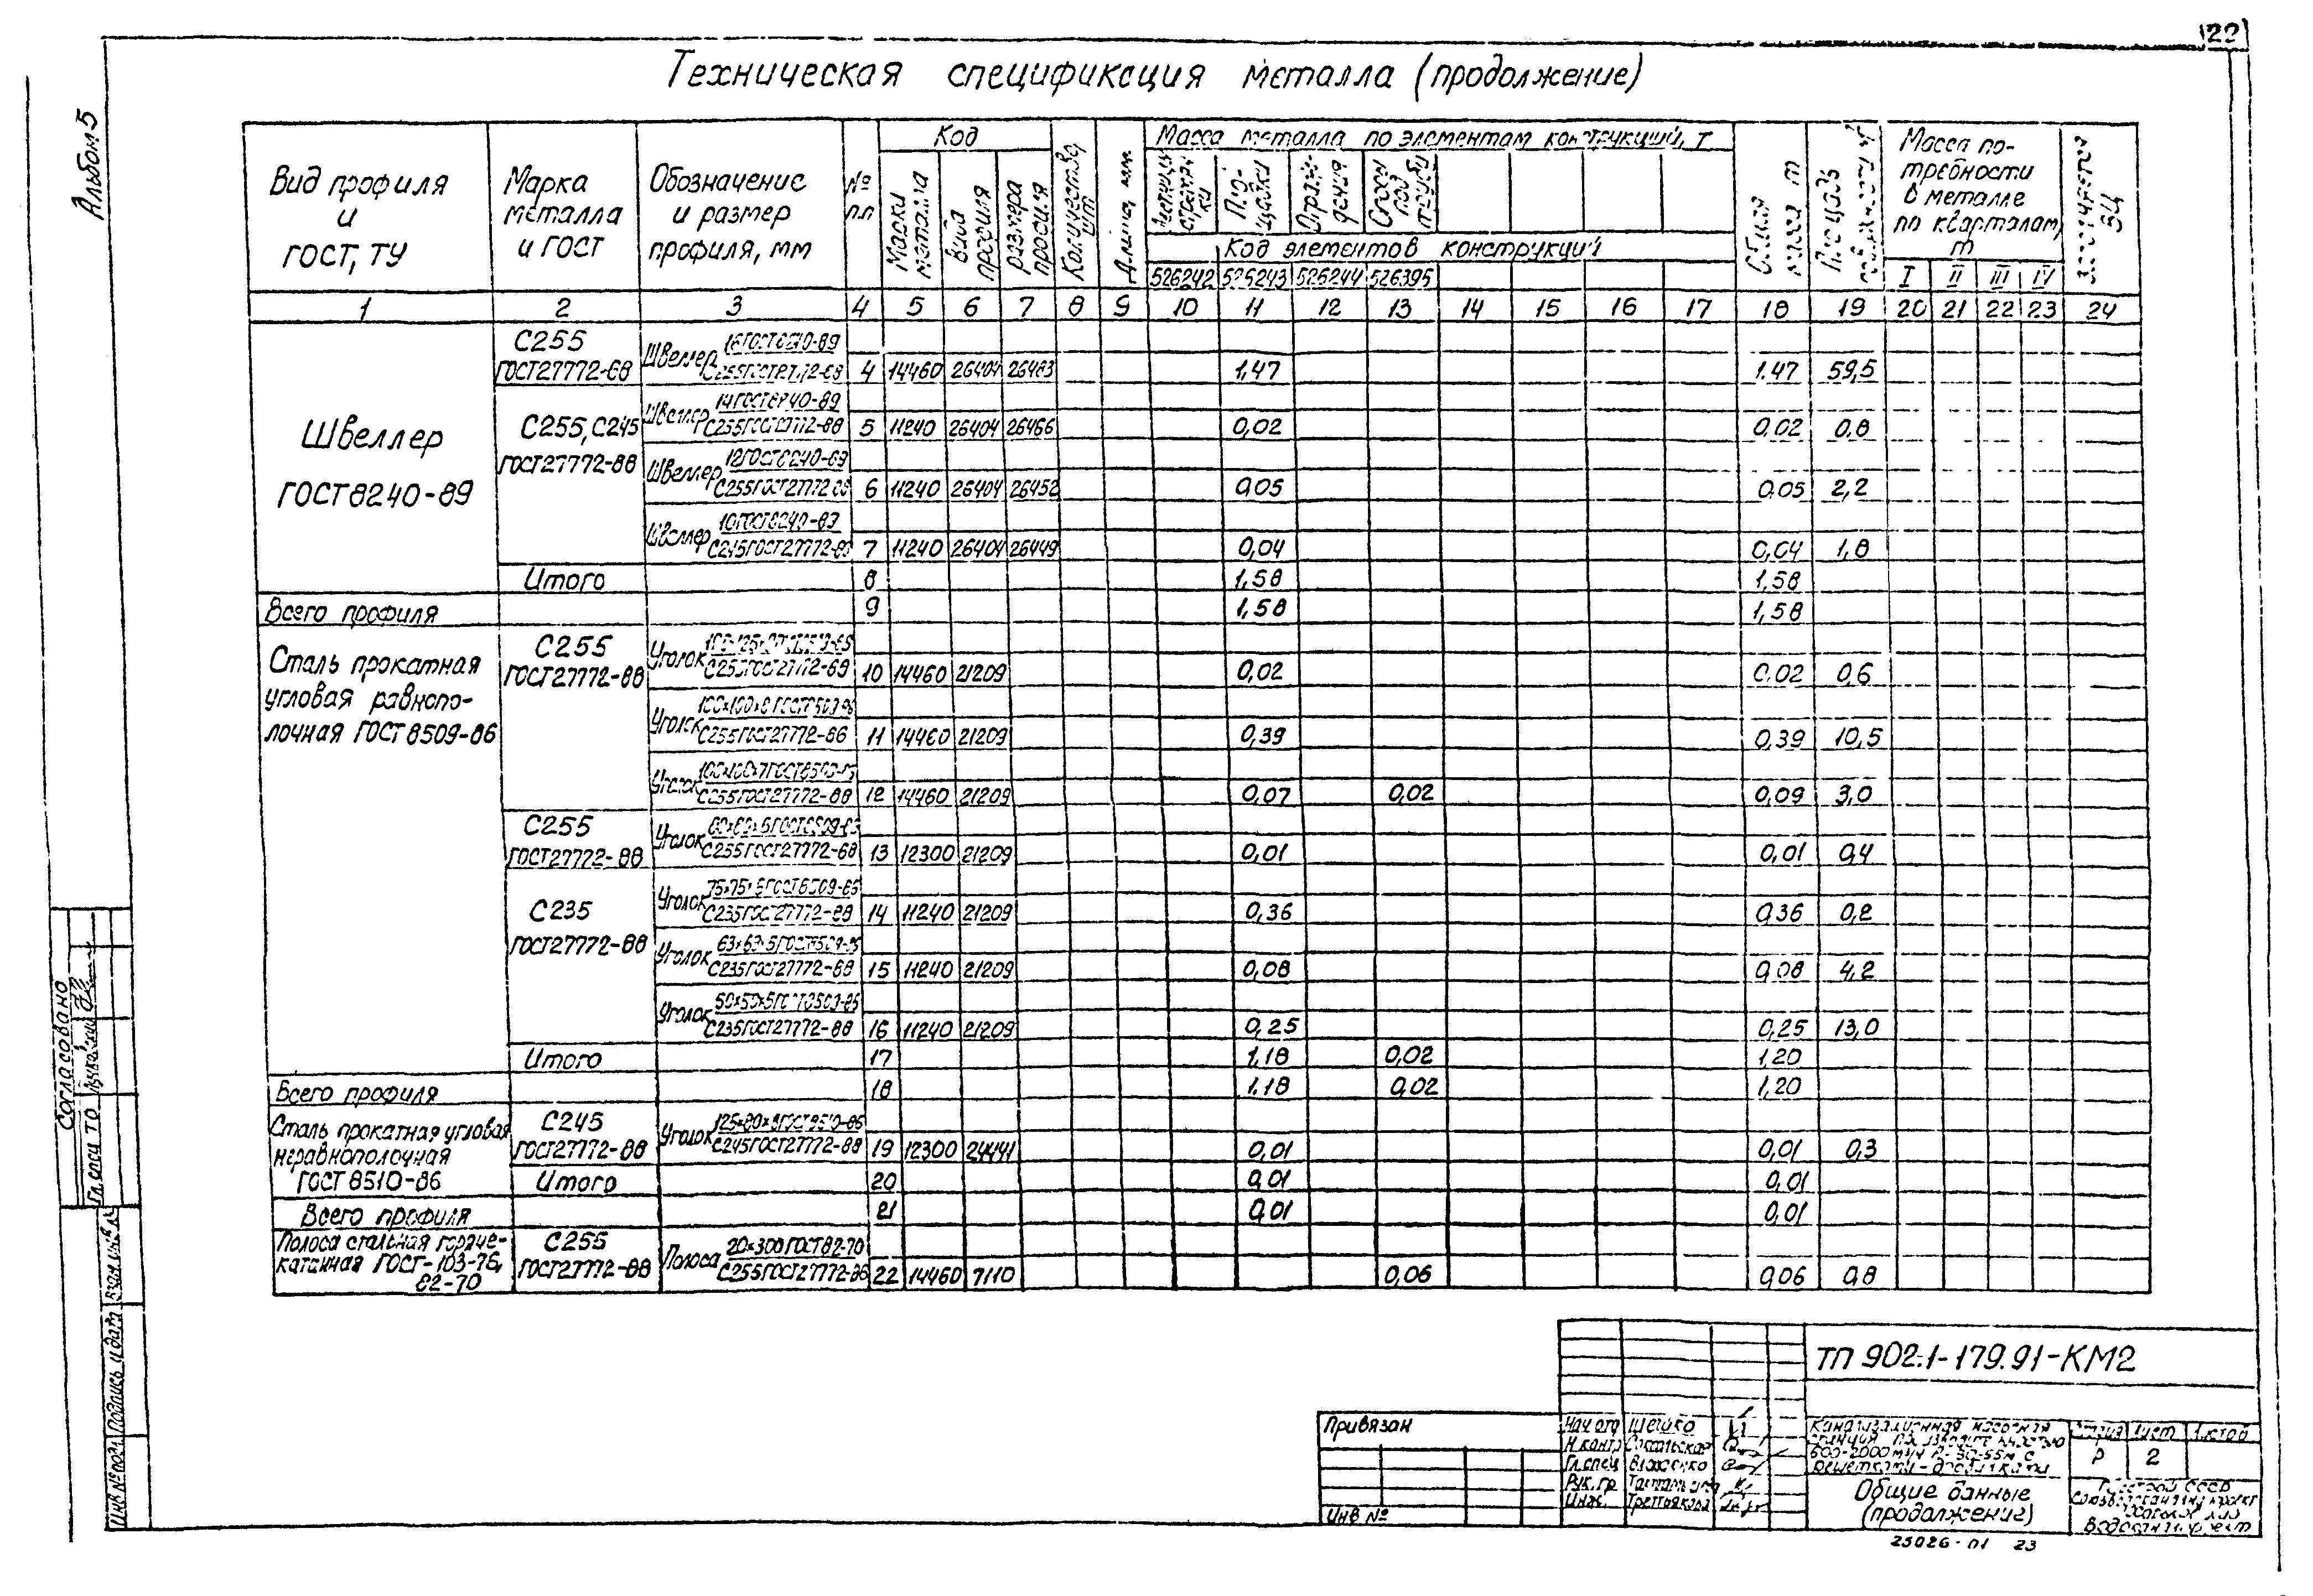 22
Альбом 5
Техническая спецификация металла (продолжение)
Вид профиля и ГОСТ, ТУ
Марка металла и ГОСТ
Обозначение и размер профиля, мм
№ п.п
Код
Марки металла
Вида профиля
размера профиля
Количество, шт
Длина, мм
Масса металла по элементам конструкций, т
Пло-щадки
Ограж-дения
Код элементов конструкций
526242 526243 526244 526395
Общая масса т
Масса по-требности в металле по кварталам, т
I II III IV
ВЦ
1 2 3 4 5 6 7 8 9 10 11 12 13 14 15 16 17 18 19 20 21 22 23 24
Швеллер
ГОСТ 8240-89
С255
ГОСТ27772-88
Швеллер 16ГОСТ8240-89
С255ГОСТ27772-88 4 14460 26404 26483 1,47 1.47 59,5
С255, С245
ГОСТ27772-88
Швеллер 14ГОСТ8240-89
С255ГОСТ27772-88 5 11240 26404 26466 0,02 0,02 0,8
Швеллер 12ГОСТ8240-89
С255ГОСТ27772-88 6 11240 26404 26452 0,05 0,05 2,2
Швеллер 10ГОСТ8240-89
С245ГОСТ27772-88 7 11240 26404 26449 0,04 0,04 1,8
Итого 8 1,58 1,58
Всего профиля 9 1,58 1,58
Сталь прокатная
угловая равнопо-
лочная ГОСТ 8509-86
С255
ГОСТ27772-88
Уголок
С255ГОСТ27772-88 10 14460 21209 0,02 0,02 0,6
Уголок 100х100х8ГОСТ8509-86
С255ГОСТ27772-88 11 14460 21209 0,39 0,39 10,5
Уголок 100х100х7ГОСТ8509-86
С255ГОСТ27772-88 12 14460 21209 0,07 0,02 0,09 3,0
С255
ГОСТ27772-88
Уголок
С255ГОСТ27772-88 13 12300 21209 0,01 0,01 0,4
С235
ГОСТ27772-88
Уголок 75х75х6ГОСТ8509-86
С235ГОСТ27772-88 14 11240 21209 0,36 0,36 0,2
Уголок 63х63х5ГОСТ8509-86
С235ГОСТ27772-88 15 11240 21209 0,08 0,08 4,2
Уголок 50х50х5ГОСТ8509-86
С235ГОСТ27772-88 16 11240 21209 0,25 0,25 13,0
Итого 17 1,18 0,02 1,20
Всего профиля 18 1.18 0,02 1,20
Сталь прокатная угловая
неравнополочная
ГОСТ 8510-86
С245
ГОСТ27772-88
Уголок 125х80х8ГОСТ8510-86
С245ГОСТ27772-88 19 12300 24441 0,01 0,01 0,3
Итого 20 0,01 0,01
Всего профиля 21 0,01 0,01
Полоса стальная горяче-
катанная ГОСТ-103-76,
82-70
С255
ГОСТ27772-88
Полоса 20х300ГОСТ82-70
С255ГОСТ27772-88 22 14460 7110 0,06 0,06 0,8
Согласовано
Гл.спец ТО
Взам.инв.№
Подпись и дата
Инв № подл
Привязан
Инв №
Нач отд Шейко
Н.контр
Гл.спец
Рук. гр
Инж. Третьякова
ТП 902.1-179.91-КМ2
Канализационная насосная
решетками-дробилками
Стадия Лист Листов
Р 2
Общие данные
(продолжение)
Госстрой СССР
25026-01 23